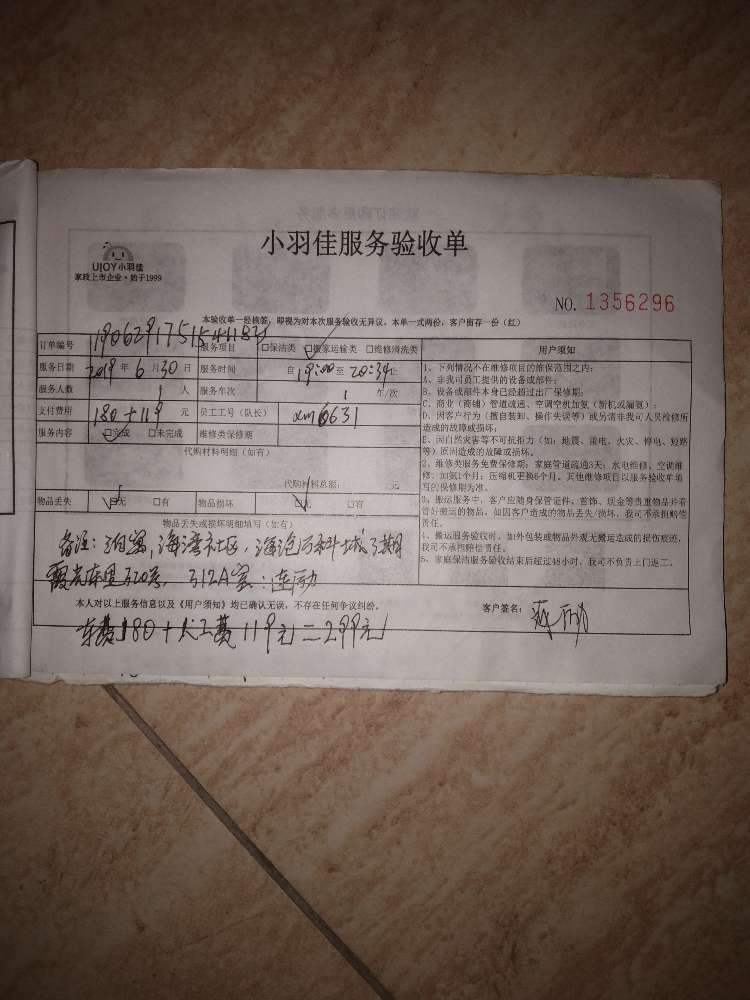 小羽佳服务验收单
UJOY小羽佳
家政上市企业·始于1999
NO. 1356296
本验收单一经核签,即视为对本次服务验收无异议。本单一式两份,客户留存一份(红)
订单编号 服务项目 □保洁类 □搬家运输类 □维修清洗类
服务日期 2019 年 6 月 30 日 服务时间 自 19:00 至 20:34 止
服务人数 1 人 服务车次 1 车/次
支付费用 180+119 元 员工工号(队长) xm0631
服务内容 □完成 □未完成 维修类保修期
代购材料明细(如有)
代购材料总额: 元
物品丢失 □无 □有 物品损坏 □无 □有
物品丢失或损坏明细填写(如有)
备注: 海湾社区, 海沧万科城3期
东里320号, 312A室:
本人对以上服务信息以及《用户须知》均已确认无误,不存在任何争议纠纷。
客户签名:
车费180+人工费119元=299元
用户须知
1、下列情况不在维修项目的维保范围之内:
A、非我司员工提供的设备或部件;
B、设备或部件本身已经超过出厂保修期;
C、商业(商铺)管道疏通、空调空机加氨(新机或漏氨);
D、因客户行为(擅自装卸、操作失误等)或另请非我司人员检修所
造成的故障或损坏。
E、因自然灾害等不可抗拒力(如:地震、雷电、火灾、停电、短路
等)原因造成的故障或损坏。
2、维修类服务免费保修期:家庭管道疏通3天;水电维修、空调维
修、加氨1个月;压缩机更换6个月。其他维修项目以服务验收单填
写的保修期为准。
3、搬运服务中,客户应随身保管证件、首饰、现金等贵重物品并看
管好搬运的物品,如因客户造成的物品丢失/损坏,我司不承担赔偿
责任。
4、搬运服务验收时,如外包装或物品外观无搬运造成的损伤痕迹,
我司不承担赔偿责任。
5、家庭保洁服务验收结束后超过48小时,我司不负责上门返工。